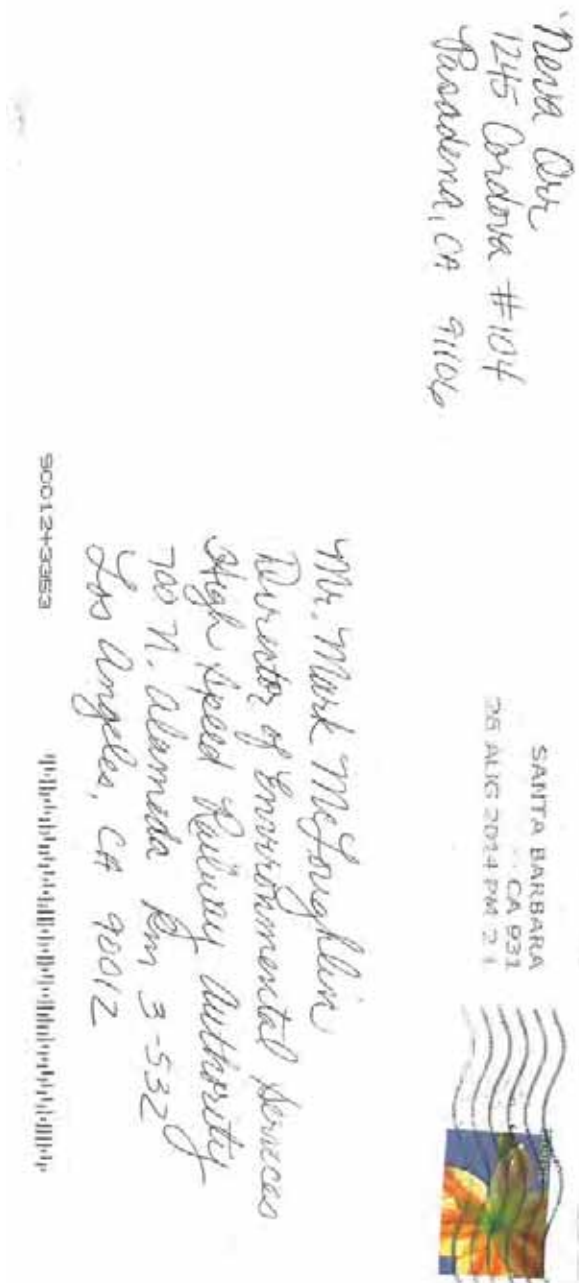 Neva Orr
1245 Cordova #104
Pasadena, CA 91106
SANTA BARBARA
CA 931
26 AUG 2014 PM 2
Mr. Mark McLoughlin
Director of Environmental Services
High Speed Railway Authority
700 N. Alameda Rm 3-532
Los Angeles, CA 90012
90012+3353